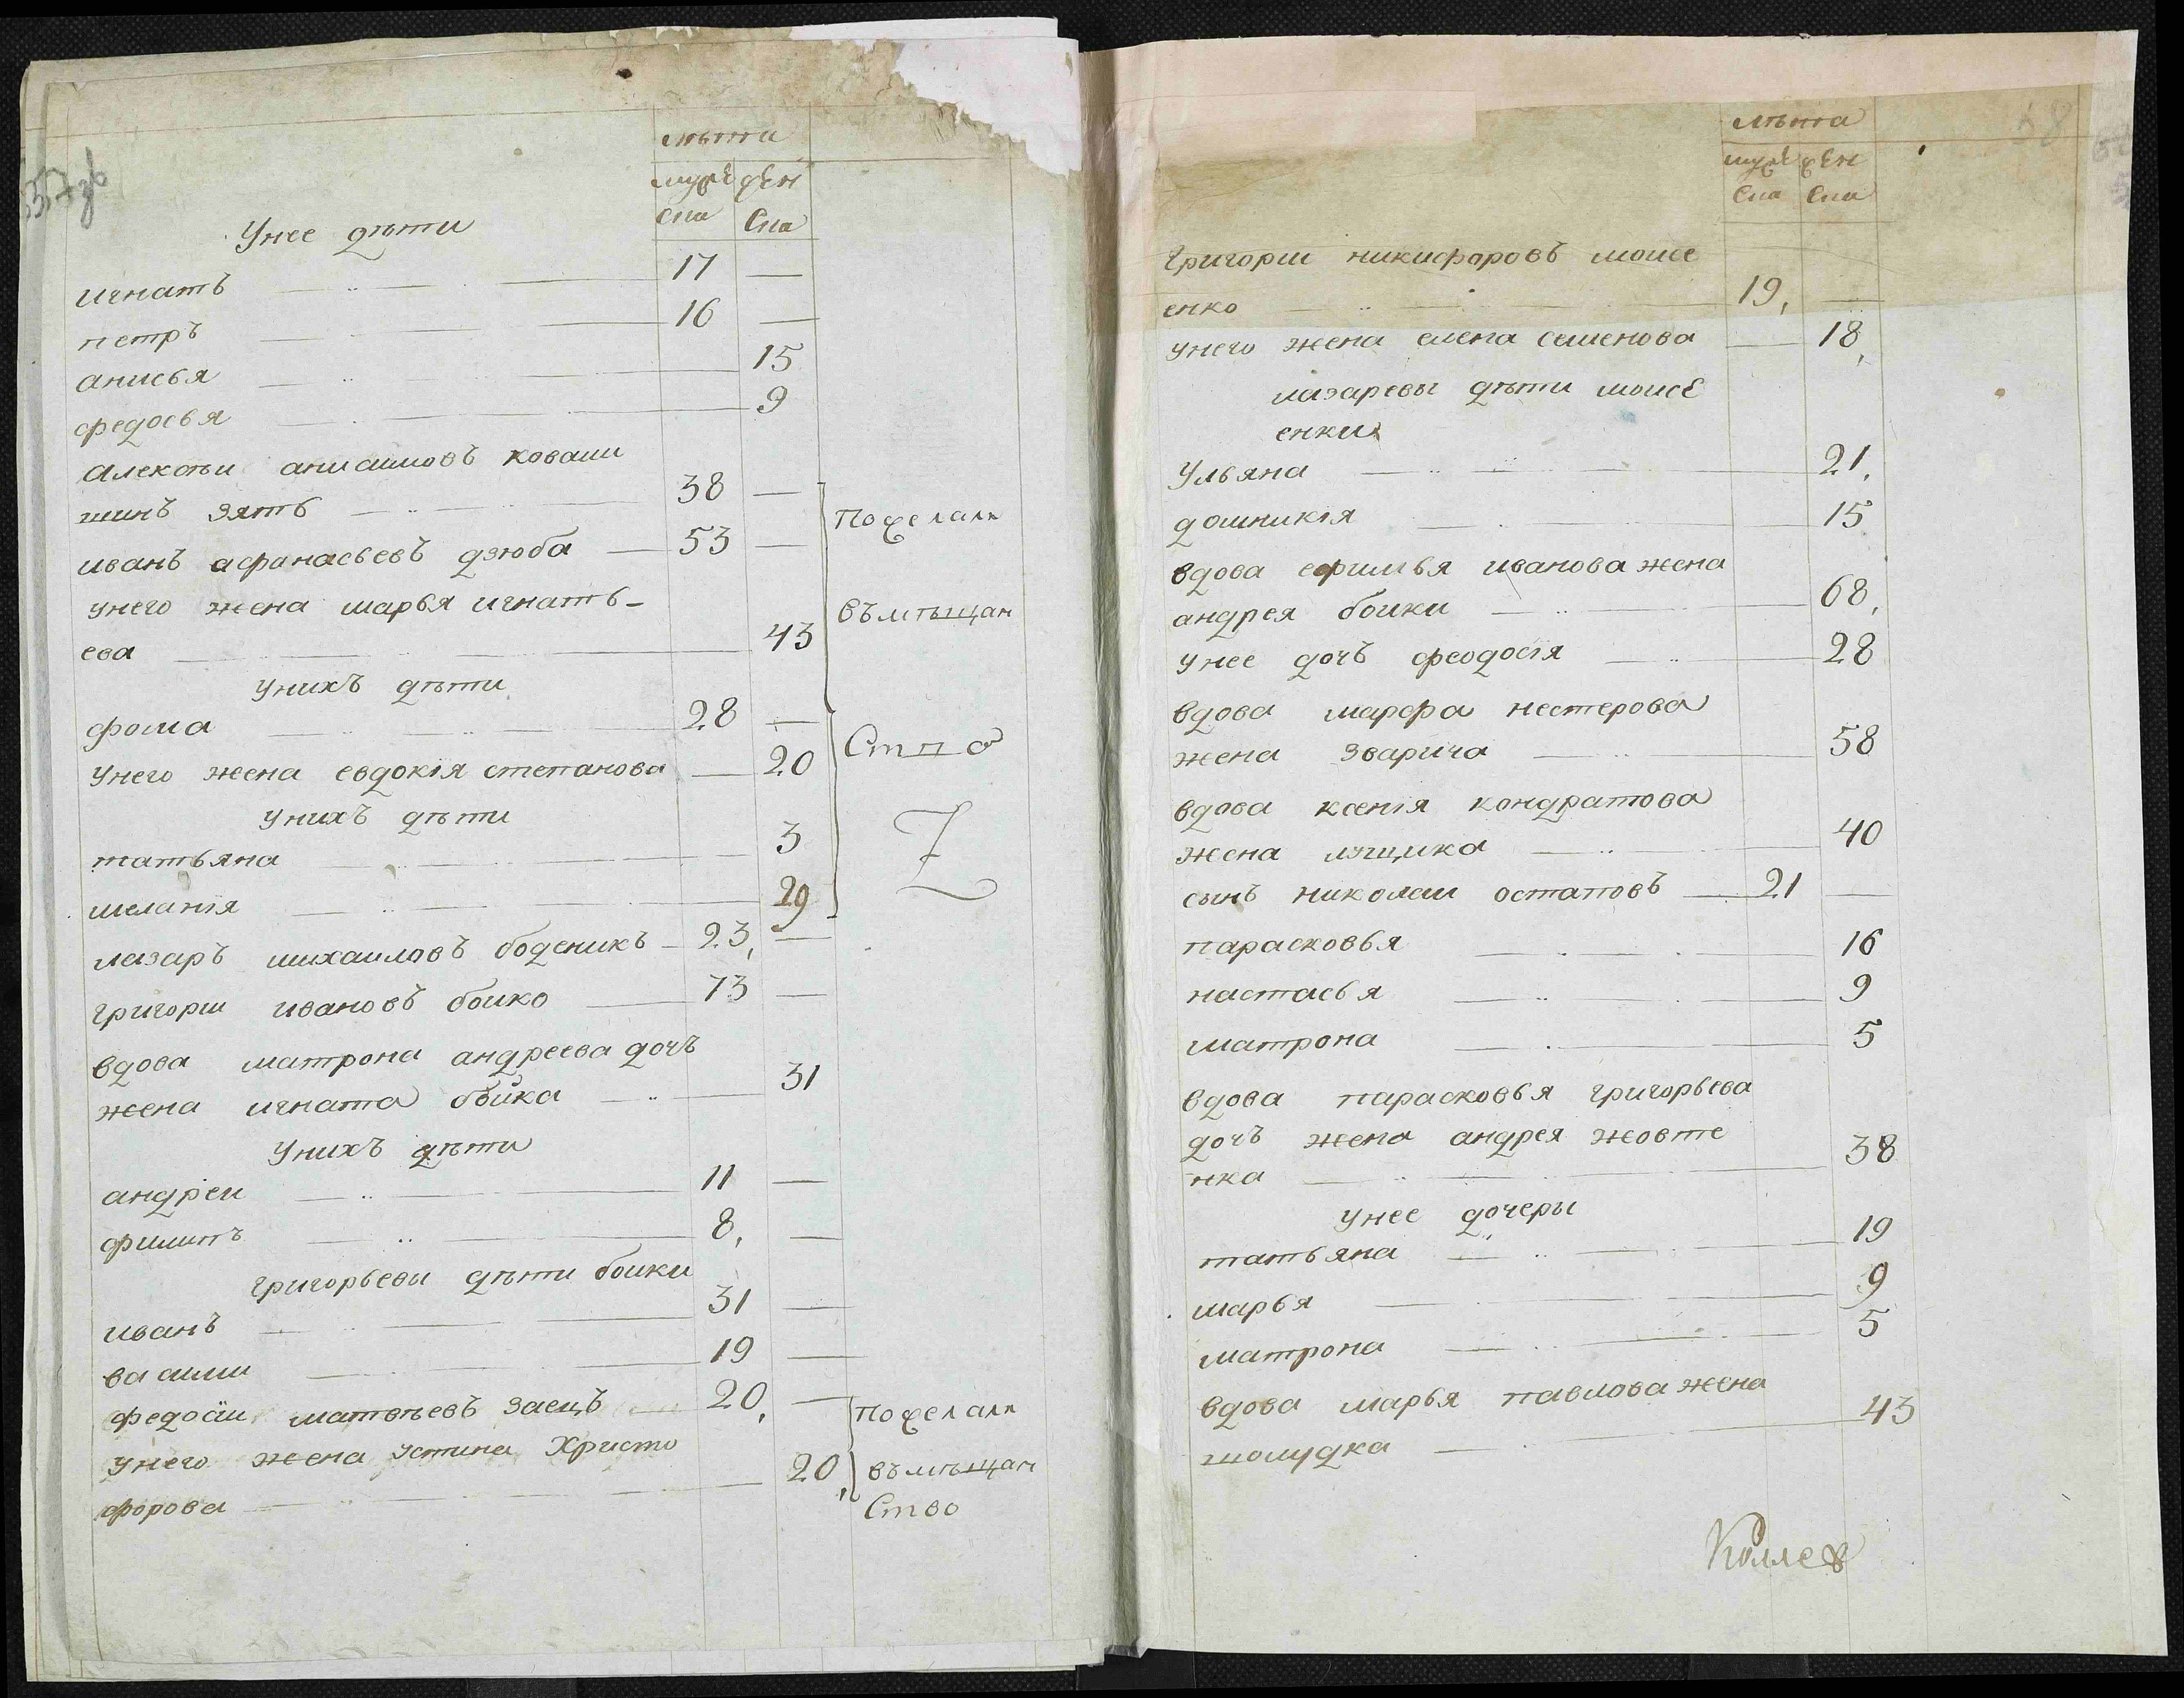 лѣта
муже жен
ска ска
унее дѣти
игнатъ 17 —
петръ 16 —
анисья 15
федосья 9
алексѣи анисимовъ коваши
шинъ зять 38 —
иванъ афанасьевъ дзюба — 53 —
унего жена марья игнать-
ева 43
унихъ дѣти
фома 28 —
унего жена евдокія степанова — 20
унихъ дѣти
татьяна 3
меланія 29
лазаръ михаиловъ боденикъ — 23, —
григори ивановъ боико — 73 —
вдова матрона андреева дочъ
жена игната боика 31
унихъ дѣти
андреи 11 —
филипъ 8, —
григорьевы дѣти боики
иванъ 31 —
васили 19 —
федосіи матвѣевъ заецъ — 20, —
унего жена устина христо
форова 20,
пожелали
въмѣщан
ство
пожелали
въмѣщан
ство
лѣта
муже жен
ска ска
григори никифоровъ моисе
енко 19, —
унего жена елена семенова — 18,
лазаревы дѣти моисе
енки
ульяна 21,
домникія 15
вдова ефимья иванова жена
андрея боики 68,
унее дочъ феодосія 28
вдова марфа нестерова
жена зварича 58
вдова ксенія кондратова
жена лущика 40
сынъ николаи остаповъ — 21 —
парасковья 16
настасья 9
матрона 5
вдова парасковья григорьева
дочъ жена андрея жовте
нка 38
унее дочеры
татьяна 19
марья 9
матрона 5
вдова марья павлова жена
шолудка 43
Коллеж